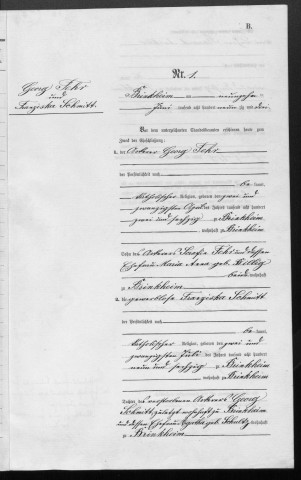 B.
Georg Fehr
und
Franziska Schmitt.
Nr. 1.
Brinkheim am neunzehn
Juni tausend acht hundert neunzig und drei.
Vor dem unterzeichneten Standesbeamten erschienen heute zum
Zweck der Eheschließung:
1. der Ackerer Georg Fehr
der Persönlichkeit nach
be kannt,
katholischer Religion, geboren den zwei und
zwanzigsten April des Jahres tausend acht hundert
zwei und sechzig zu Brinkheim
, wohnhaft zu Brinkheim
Sohn des Ackerers Serafin Fehr und dessen
Ehefrau Maria Anna geb.
beide wohnhaft
zu Brinkheim
2. die gewerblose Franziska Schmitt
der Persönlichkeit nach
be kannt,
katholischer Religion, geboren den zwei und
zwanzigsten Juli des Jahres tausend acht hundert
neun und sechzig zu Brinkheim
, wohnhaft zu Brinkheim
Tochter des verstorbenen Ackerers Georg
Schmitt zuletzt wohnhaft zu Brinkheim
und dessen Ehefrau geb. Schultz
wohnhaft
zu Brinkheim